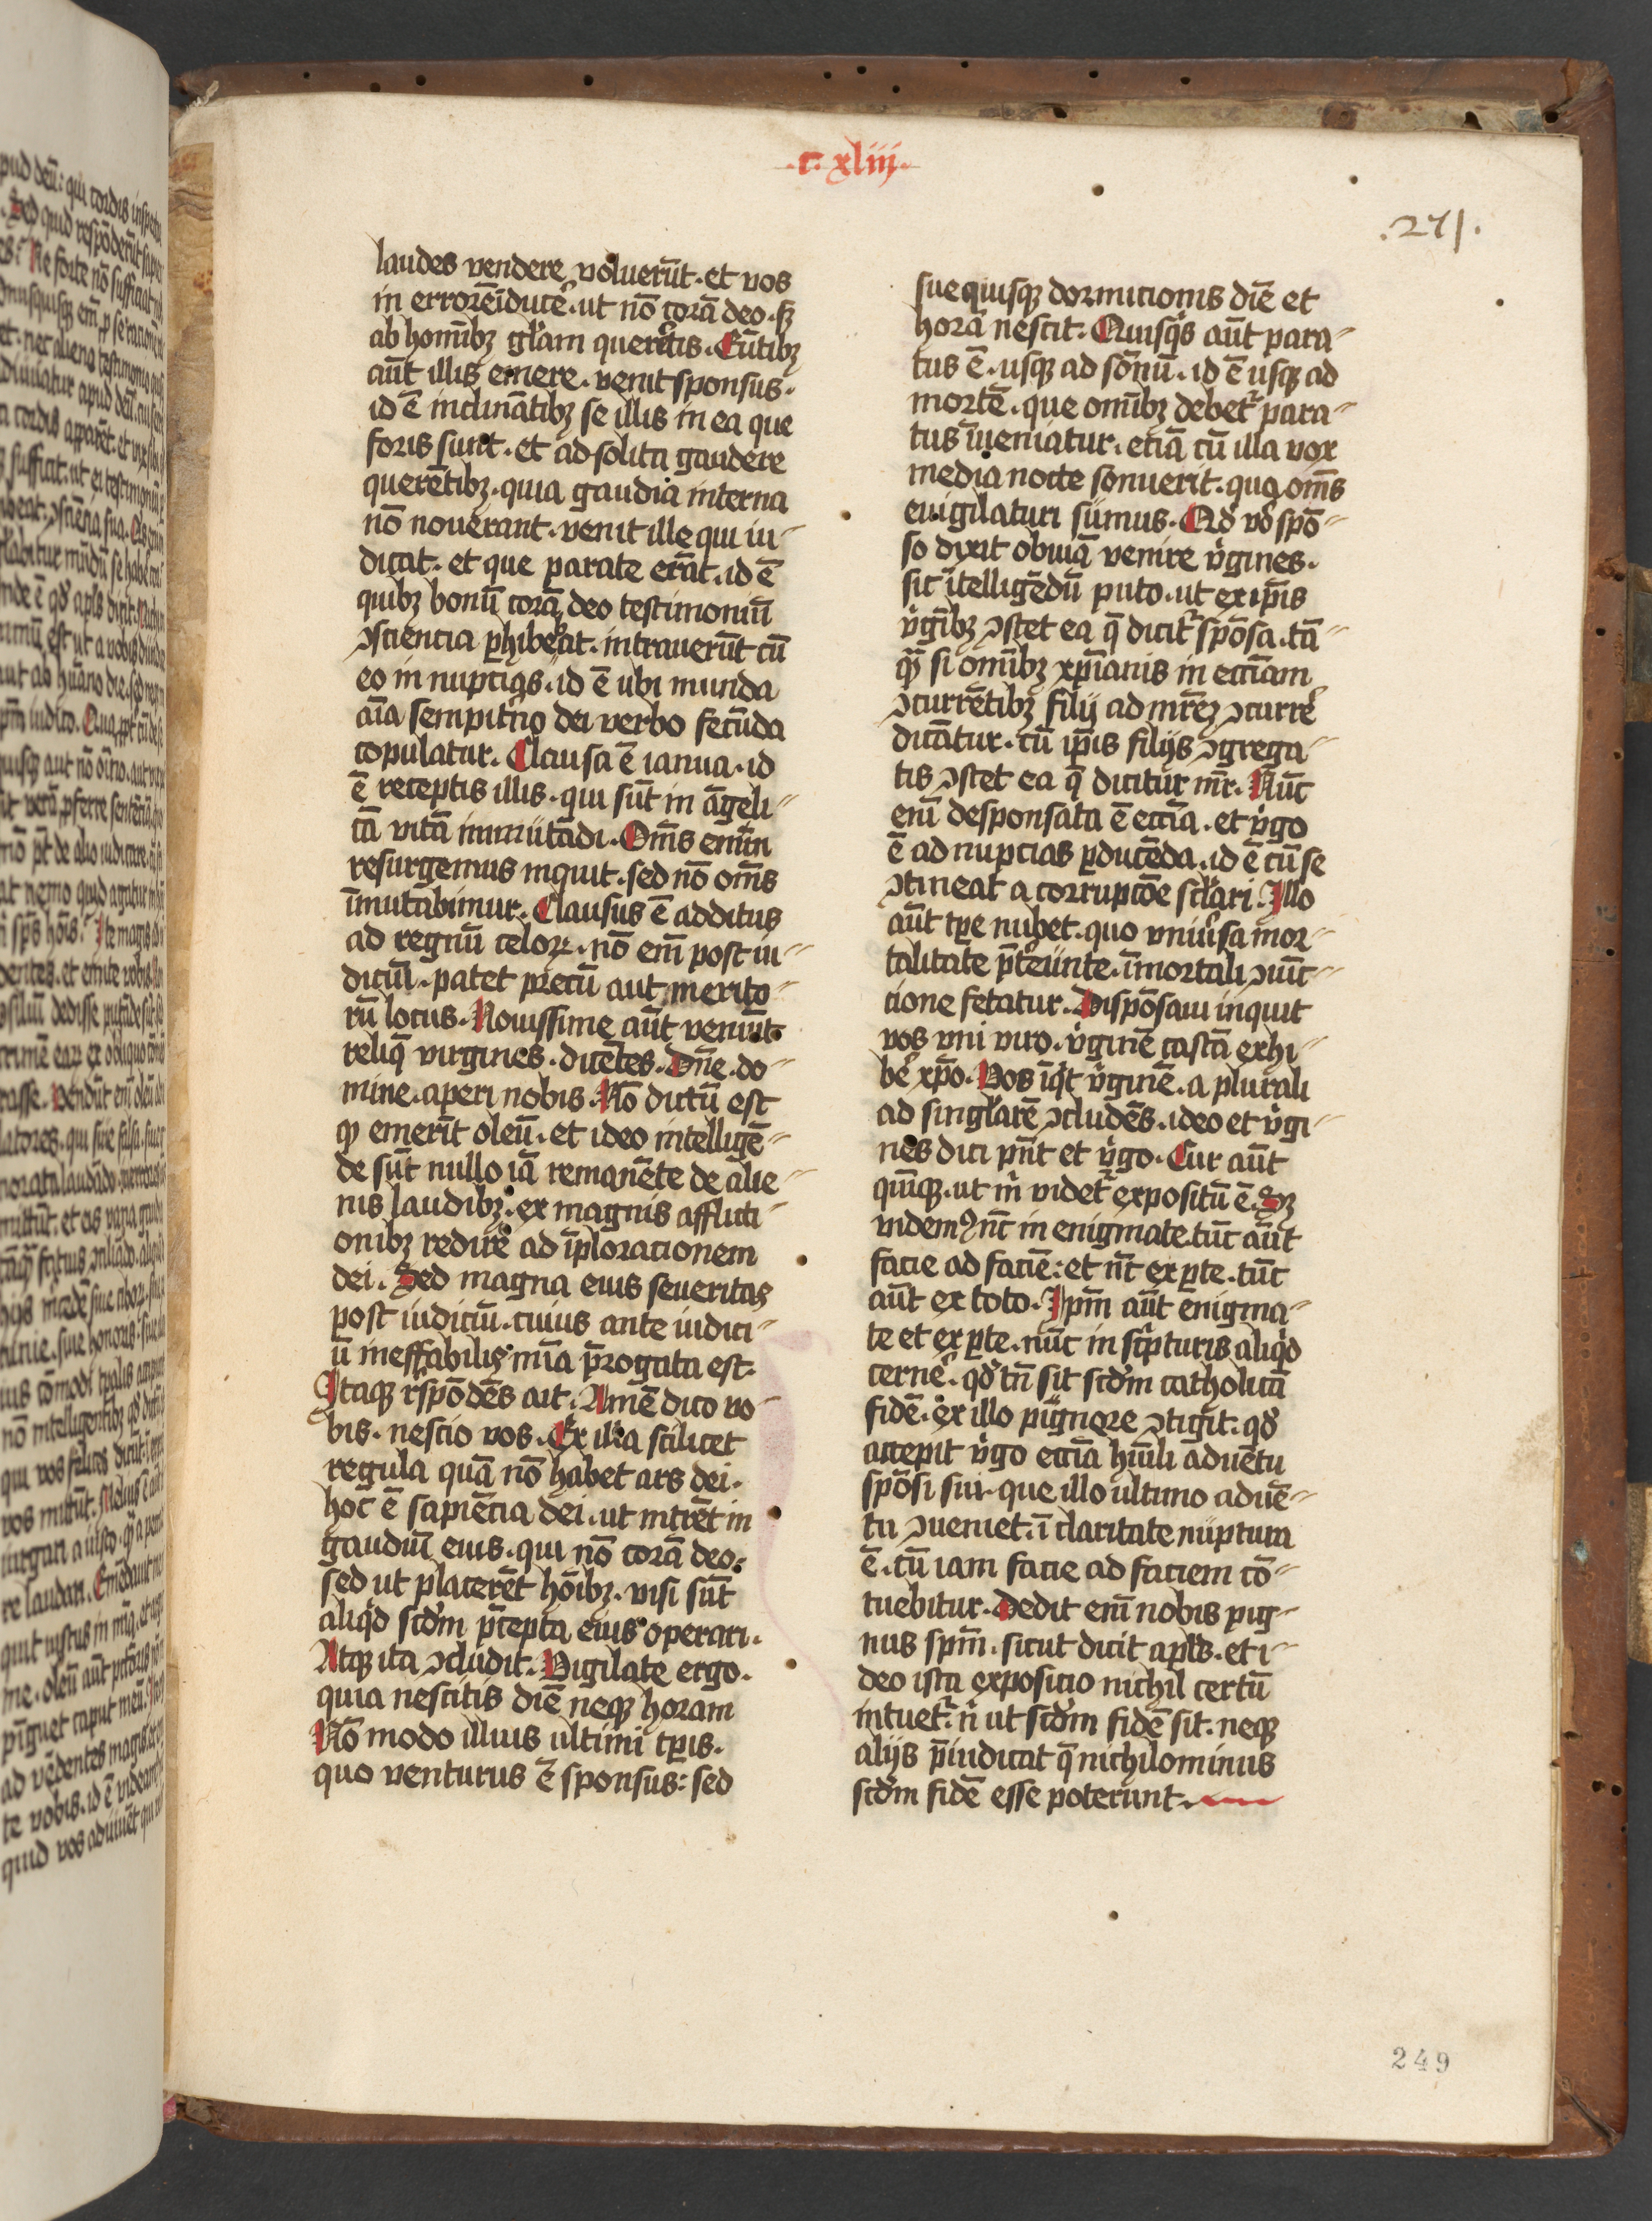 .c. xliij.
.271.
laudes vendere voluerūt. et vos
in errorē īducē. ut nō corā deo. sꝫ
ab homībꝫ glām querētis. Eūtibꝫ
aūt illis emere. venit sponsus.
id ē inclināntibꝫ se illis in ea que
foris sunt. et ad solita gaudere
querētibꝫ. quia gaudia interna
nō nouerant. venit ille qui iu-
dicat. et que parate erāt. id ē
quibꝫ bonū corā deo testimoniū
ꝯsciencia ꝑhibebat. intrauerūt cū
eo in nupcias. id ē ubi munda
aīa sempitͥno dei verbo fecūda
copulatur. Clausa ē ianua. id
ē receptis illis. qui sūt in āgeli-
cā vitā inmutādi. Om̄s enim
resurgemus inquit. sed nō om̄s
īmutabimur. Clausus ē additus
ad regnū celoꝝ. nō em̄ post iu-
diciū. patet precū aut merito-
rū locus. Nouissime aūt veniūt
reliq̄ virgines. dicētes. Dn̄e. do-
mine. aperi nobis. Nō dictū est
ꝙ emerīt oleū. et ideo intelligē-
de sūt nullo iā remanēte de alie-
nis laudibꝫ. ex magnis afflicti-
onibꝫ redire ad īploracionem
dei. Sed magna eius seueritas
post iudiciū. cuius ante iudici-
ū ineffabilis mīa p̄rogata est.
Itaqꝫ rn̄spōdēs ait. Amē dico vo-
bis. nescio vos. Ex illa scilicet
regula quā nō habet ars dei.
hoc ē sapiēcia dei. ut intrēt in
gaudiū eius. qui nō corā deo.
sed ut placerēt hōibꝫ. visi sūt
aliqͥd scd̄m p̄cepta eius operari.
Atqꝫ ita ꝯcludit. Vigilate ergo.
quia nescitis diē neqꝫ horam
Nō modo illius ultimi tꝑis.
quo venturus ē sponsus: sed
sue qiusqꝫ dormicionis diē et
horā nescit. Quisqͥs aūt para-
tus ē. usqꝫ ad sōnū. id ē usqꝫ ad
mortē. que omībꝫ debetͬ para-
tus īueniatur. etiā cū illa vox
media nocte sonuerit. quo om̄s
euigilaturi sumus. Qd̓ vͦ spō-
so dyxit obuiā venire vͥgines.
sic ītelligēdū puto. ut ex ip̄is
vͥgībꝫ ꝯstet ea q̄ dicitͬ spōsa. tā-
qͣ si omībꝫ xp̄ianis in eccīam
ꝯcurrētibꝫ filij ad mr̄eꝫ ꝯcurrē
dicātur. cū ip̄is filijs ꝯgrega-
tis ꝯstet ea q̄ dicitur mr̄. Nūc
em̄ desponsata ē eccīa. et vͥgo
ē ad nupcias ꝑducēda. id ē cū se
ꝯtineat a corrupcōe scl̄ari. Illo
aūt tꝑe nubet. quo vniūsa mor-
talitate p̄teūnte. īmortali ꝯiūc-
cione fetatur. Dispōsaui inquit
vos vni viro. vͥginē castā exhi-
bē xp̄o. Vos īqͥt vͥginē. a plurali
ad singl̄arē ꝯcludēs. ideo et vͥgi-
nes dici pn̄t et vͥgo. Cur aūt
quīqꝫ. ut m̄ videtͬ expositū ē. Sꝫ
videmꝰ nūc in enigmate. tūc aūt
facie ad faciē: et nūc ex ꝑte. tūc
aūt ex toto. Ip̄m aūt enigma-
te et ex ꝑte. nūc in scͥpturis aliqͥd
cernē. qd̓ tn̄ sit scd̄m catholicā
fidē. ex illo pignore ꝯtigit. qd̓
accepit vͥgo eccīa hūīli aduētu
spōsi sui. que illo ultimo aduē-
tu ꝯueniet. ī claritate nuptura
ē. cū iam facie ad faciem cō-
tuebitur. Dedit em̄ nobis pig-
nus sp̄m. sicut dicit apl̄s. et i-
deo ista exposicio nichil certū
intuetͬ. n̄ ut scd̄m fidē sit. neqꝫ
alijs p̄iudicat q̄ nichilominus
scd̄m fidē esse poterunt.
249